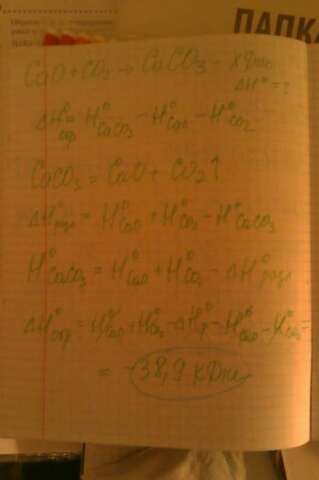 ПАПКА
CaO + CO₂ → CaCO₃ -
ΔH° = ?
ΔH°обр H°CaCO₃ - H°CaO - H°CO₂
CaCO₃ = CaO + CO₂↑
ΔH°разл = H°CaO + H°CO₂ - H°CaCO₃
H°CaCO₃ = H°CaO + H°CO₂ - ΔH°разл
ΔH°обр = H°CaO + H°CO₂ - ΔH°р - H°CaO - H°CO₂ =
= -38,9 кДж